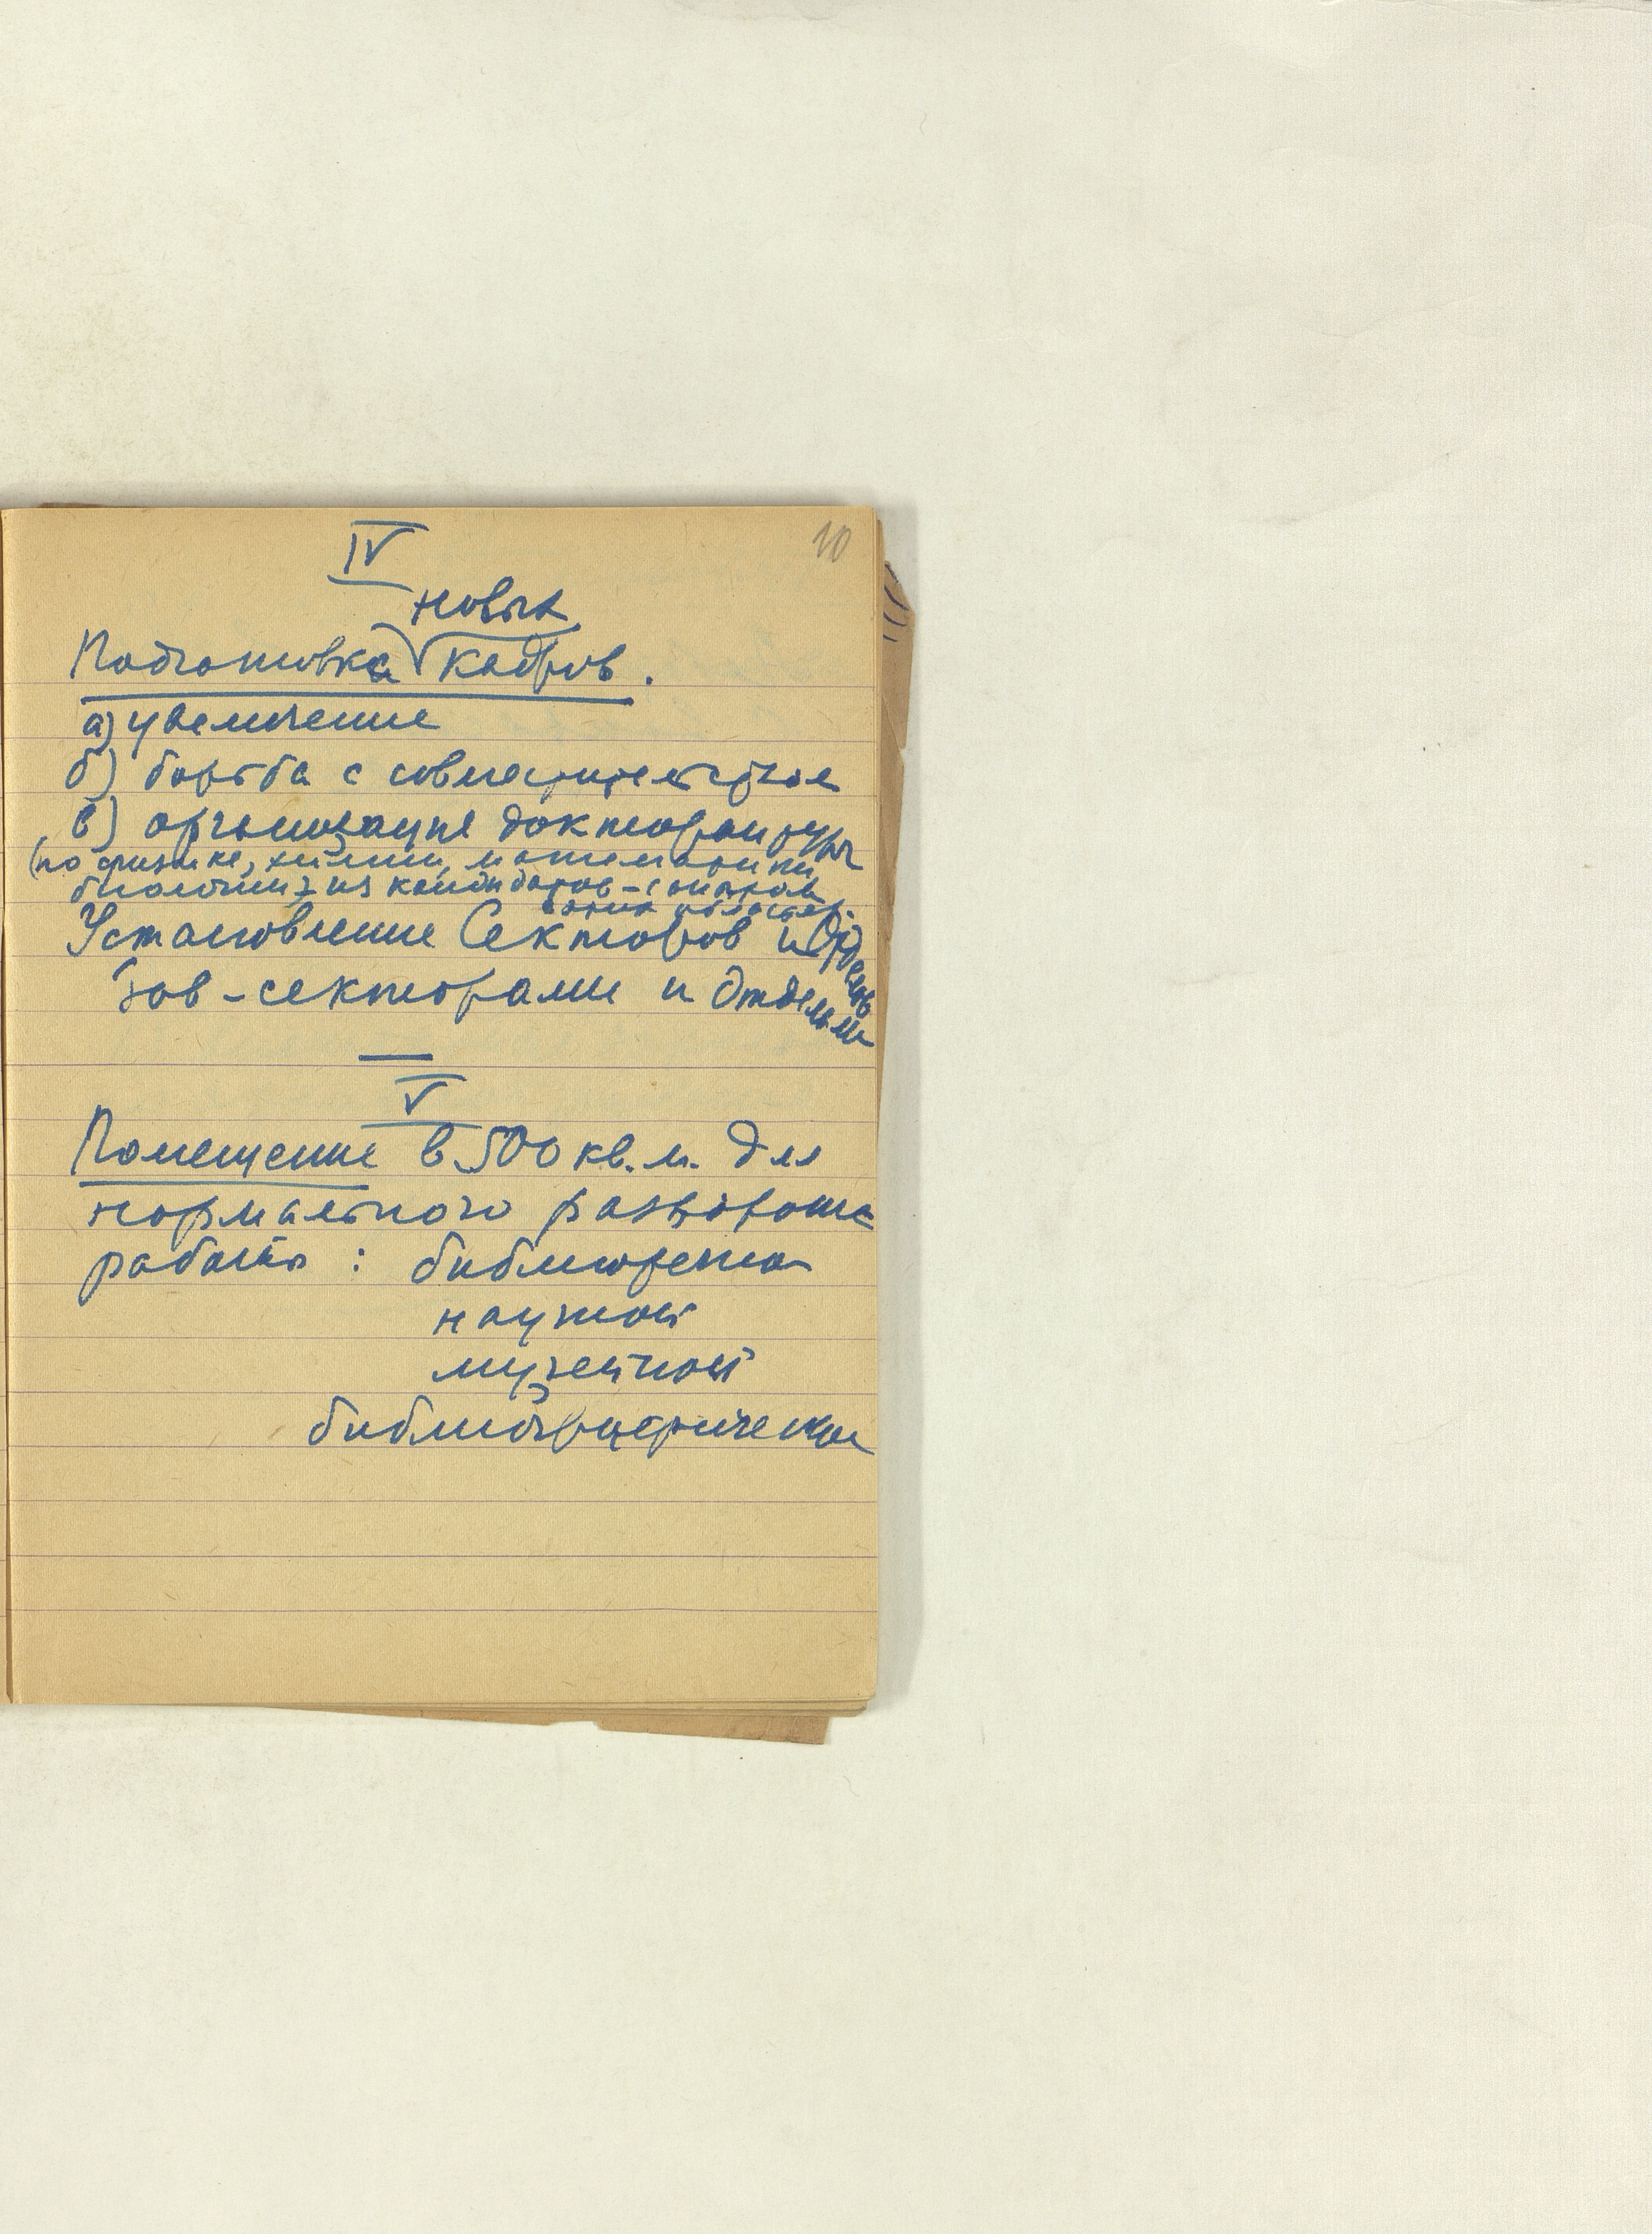 10
IV
новых
Подготовка кадров.
а) увеличение
б) борьба с совместительством
в) организация докторантуры
(по физике, химии, математики,
биологии) из кандидатов
этих областей.
Установление Секторов и Отделов
Зав-секторами и Отделами
V
Помещение в 500 кв. м. для
нормального разворота
работы: библиотека
научной
музейной
библиографической